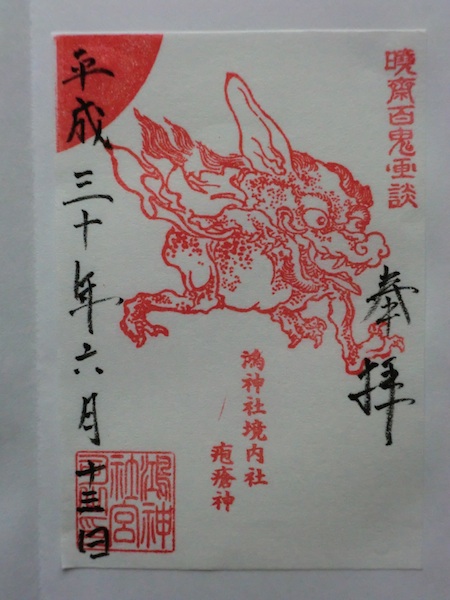 暁斎百鬼画談
奉拝
鴻神社境内社
疱瘡神
平成三十年六月十三日
鴻神
社宮
司印